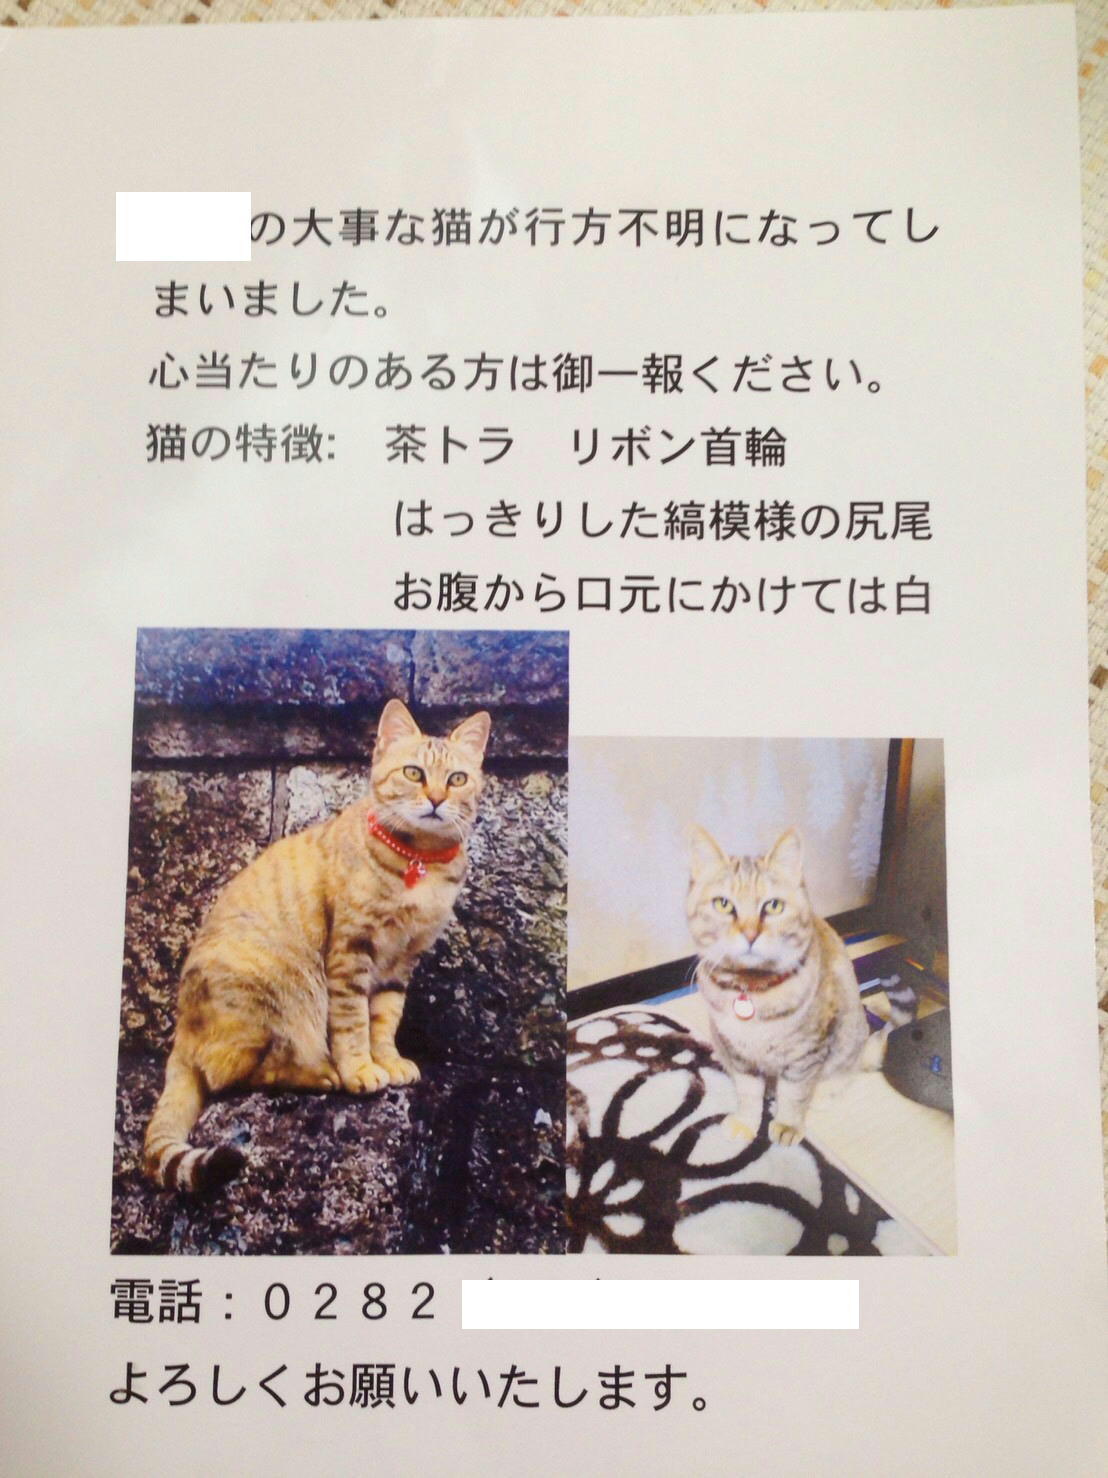 の大事な猫が行方不明になってし
まいました。
心当たりのある方は御一報ください。
猫の特徴:　茶トラ　リボン首輪
はっきりした縞模様の尻尾
お腹から口元にかけては白
電話：０２８２
よろしくお願いいたします。